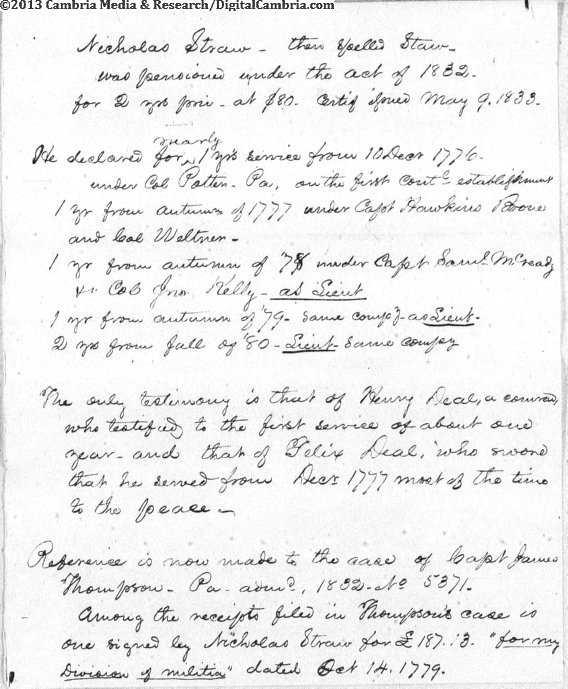 ©2013 Cambria Media & Research/DigitalCambria.com
Nicholas Straw - then spelled Staw -
was pensioned under the act of 1832 -
for 2 yrs priv - at $80. Certif issued May 9. 1833.
nearly
He declared for ^ 1 yr's service from 10 Decr 1776.
under Col Potter - Pa, on the first contl establishment
1 yr from autumn of 1777 under Capt Hawkins Boone
and Col Weltner -
1 yr from autumn of '78 under Capt Saml McGready
Col Jno Kelly - as Lieut
1 yr from autumn of '79 - same compy - as Lieut -
2 yrs from fall of '80 - Lieut - same compy
The only testimony is that of Henry Deal, a comrade,
who testified to the first service of about one
year - and that of Felix Deal, who swore
that he served from Decr 1777 most of the time
to the peace -
Reference is now made to the case of Capt James
Thompson - Pa - admd, 1832 - No 5371.
Among the receipts filed in Thompson's case is
one signed by Nicholas Straw for £187.13. "for my
Division of militia" dated Oct 14. 1779.